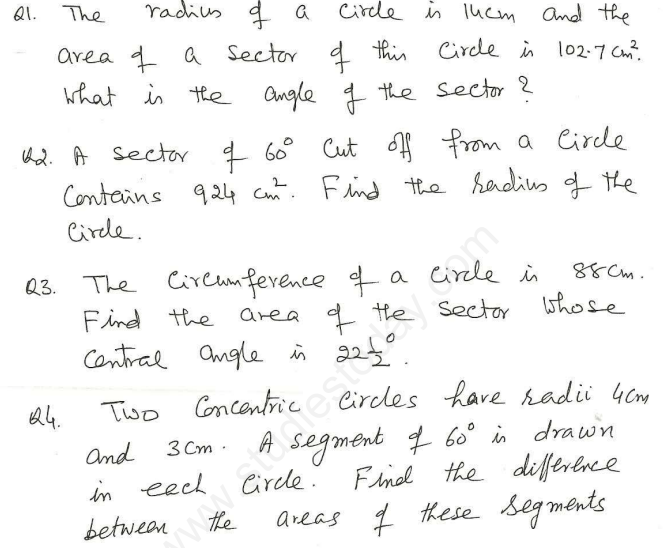 Q1. The radius of a circle is 14cm and the
area of a sector of this circle is 102.7 cm².
What is the angle of the sector ?
Q2. A sector of 60° cut off from a circle
Contains 924 cm². Find the radius of the
Circle.
Q3. The Circumference of a circle is 88cm.
Find the area of the sector whose
Central angle is 22 1/2°.
Q4. Two Concentric Circles have radii 4cm
and 3cm. A segment of 60° is drawn
in each circle. Find the difference
between the areas of these segments
www.studiestoday.com